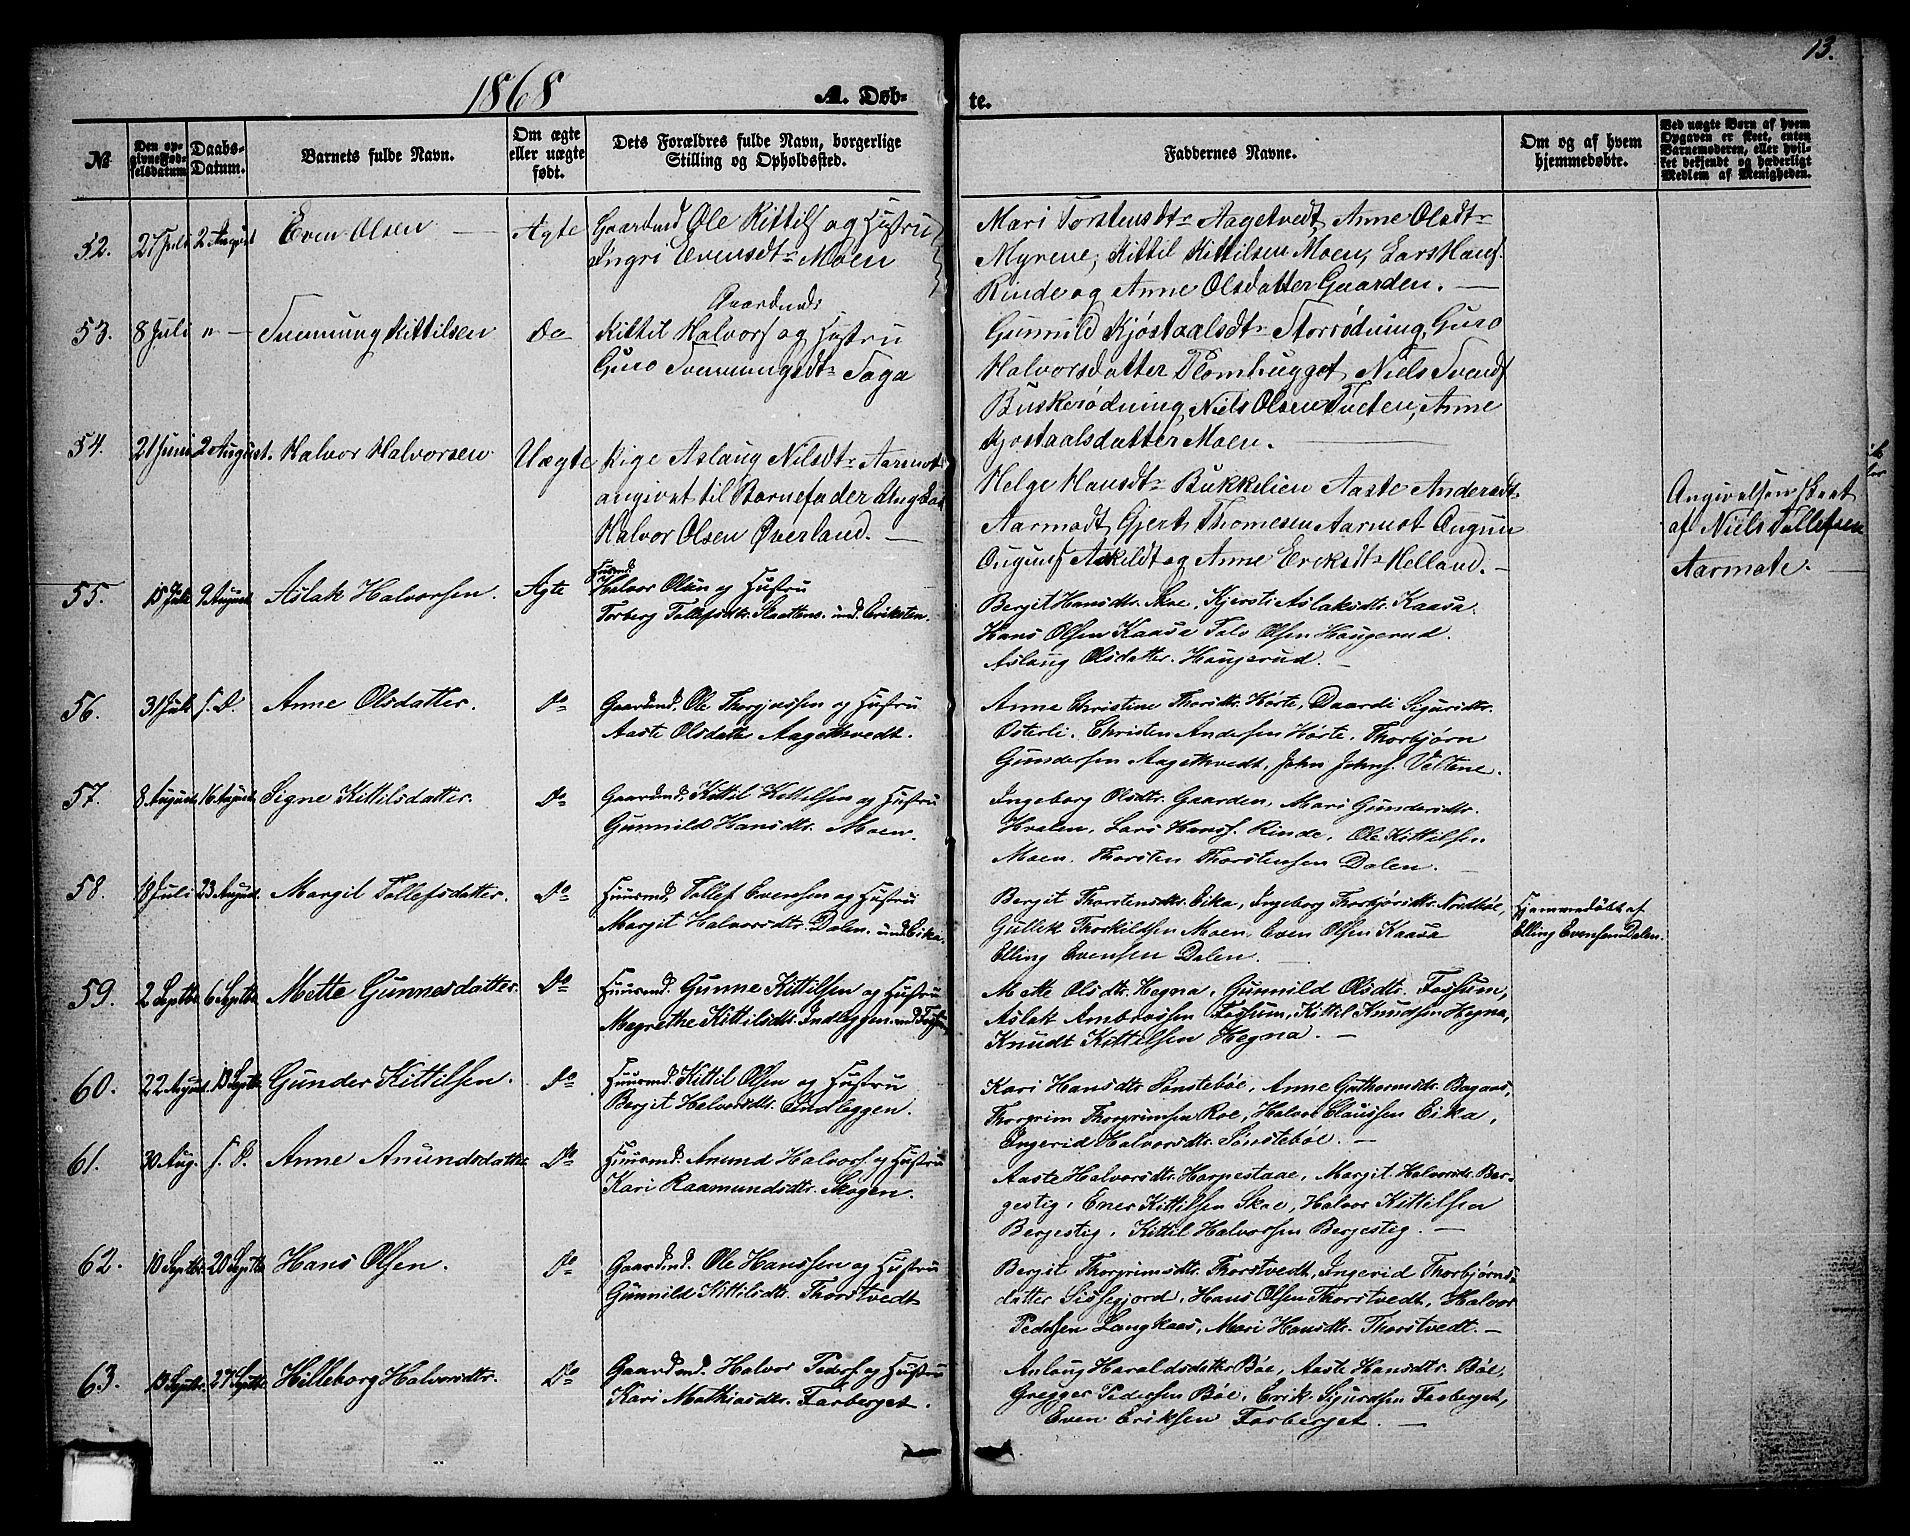 13.
1868
A. Døb-
te.
№
Den op-
givne Fød-
selsdatum
Daabs-
Datum.
Barnets fulde Navn.
Om ægte
eller uægte
født.
Dets Forældres fulde Navn, borgerlige
Stilling og Opholdssted.
Faddernes Navne.
Om og af hvem
hjemmedøbte.
Ved uægte Børn af hvem
Opgaven er skeet, enten
Barnemoderen, eller hvil-
ket bekjendt og hæderligt
Medlem af Menigheden.
52. 27 Juli 2 August Even Olsen Ægte Gaardmd Ole Kittils og Hustru
Ingri Evensdtr Moen
Mari Torstensdtr Aagetvedt Anne Olsdtr
Myrene, Kittil Kittilsen Moen, Lars Hans.
Rinde og Anne Olsdatter Gaarden. —
53. 8 Juli " — Tvenung Kittilsen Do Gaardmd
Kittil Halvors og Hustru
Guro Tvenungsdtr Saga
Gunnild Kjøstaalsdtr Storrødning, Guro
Halvorsdatter Plomhugget, Niels Svends
Buskerødning, Niels Olsen Tveten, Anne
Kjøstaalsdatter Moen. —
54. 21 Juni 2 August. Halvor Halvorsen Uægte Pige Aslaug Nilsdtr Aarmot
angivet til Barnefader Ung
Halvor Olsen Øverland. —
Helge Hansdtr Bukkelien Aaste Andersdtr
Aarmodt, Gjert Thomesen Aarmot Augun
Auguns Askildt og Anne Ericksdtr Helland. —
Angivelsen skeet
af Niels Tollefsen
Aarmote. —
55. 15 Juli 2 August Aslak Halvorsen. Ægte Huusmd.
Halvor Olsen og Hustru
Torberg Tollefsdtr. Slaattene. und. Eriksten.
Bergit Hansdtr. Skoe, Kjersti Aslaksdtr. Kaasa.
Hans Olsen Kaasa Talv Olsen Haugerud.
Aslaug Olsdatter. Haugerud. —
56. 31 Juli s. D. Anne Olsdatter. Do Gaardmd. Ole Thorgjersen og Hustru
Aaste Olsdatter Aagethvedt.
Anne Christine Thorsdtr. Hørte, Daardi Sigurdsdtr.
Osterli. Christen Andersen Hørte. Thorbjørn
Gundersen Aagethvedt, John Johns. Veltene.
57. 8 August 16 August Signe Kittilsdatter. Do Gaardmd, Kittil Kittilsen og Hustru
Gunnild Hansdtr. Moen.
Ingeborg Olsdtr. Gaarden, Mari Gundersdtr.
Hvalen. Lars Hans. Rinde. Ole Kittilsen
Moen. Thorsten Thorstensen Dalen.
58. 18 Juli 23 August Margit Tollefsdatter. Do Huusmd, Tollef Evensen og Hustru
Margit Halvorsdtr. Dalen. und Eika.
Bergit Thorstensdtr. Eika, Ingeborg Thorbjørnsdtr. Nordbøe,
Gullek Thorkildsen Moen, Even Olsen Kaasa
Elling Evensen Dalen. —
Hjemmedøbt af
Elling Evensen Dalen.
59. 2 Septbr. 6 Septbr. Mette Gunnesdatter. Do Huusmd. Gunne Kittilsen og Hustru
Magrethe Kittilsdtr. Indleggen und Fossum
Mette Olsdtr. Hegna, Gunnild Olsdtr. Fossum,
Aslak Ambrossen Fossum, Kittil Knudsen Hegna,
Knudt Kittilsen Hegna. —
60. 22 August. 13 Septbr. Gunder Kittilsen. Do Huusmd. Kittil Olsen og Hustru
Bergit Halvorsdtr. Eindleggen.
Kari Hansdtr. Sønstebøe, Anne Guthormsdtr. Bagaas,
Thorgrim Thorgrimsen Roe, Halvor Claussen Eika,
Ingerid Halvorsdtr. Sønstebøe. —
61. 30 Aug. s. D. Anne Anundsdatter Do Huusmd. Anund Halvors og Hustru
Kari Raamundsdtr. Skogen.
Aaste Halvorsdtr. Harpestaae, Margit Halvorsdtr. Ber-
gestig, Ener Kittilsen Skoe, Halvor Kittilsen
Bergestig, Kittil Halvorsen Bergestig. —
62. 10 Septbr. 20 Septbr. Hans Olsen. Do Gaardmd. Ole Hanssen og Hustru
Gunnild Kittilsdtr. Thorstvedt
Bergit Thorgrimsdtr. Thorstvedt, Ingerid Thorbjørns-
datter Sissegjord, Hans Olsen Thorstvedt, Halvor
Pedersen Langkaas, Mari Hansdtr. Thorstvedt. —
63. 13 Septbr. 27 Septbr. Hilleborg Halvorsdtr. Do Gaardmd. Halvor Peders og Hustru
Kari Mathiasdtr. Farberget.
Aslaug Haraldsdatter Bøe, Aaste Hansdtr. Bøe,
Gregger Pedersen Bøe, Erik Sigurdsen Farberget,
Even Eriksen Farberget. —